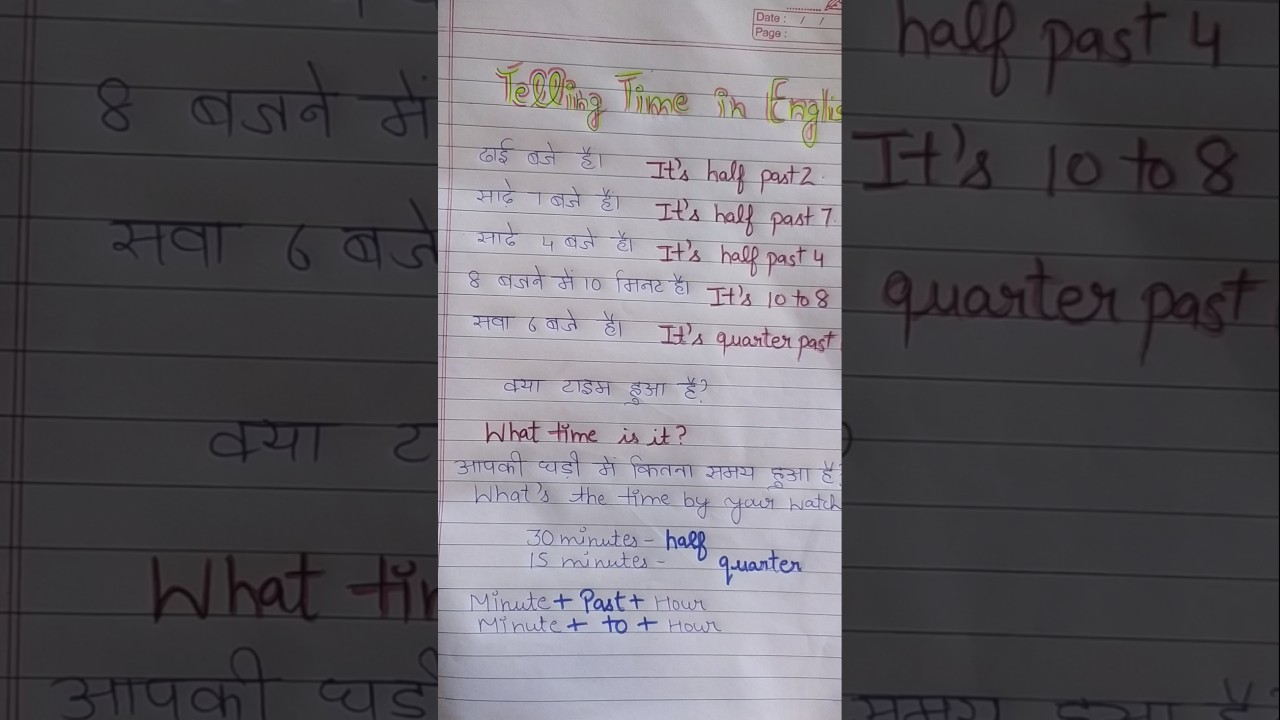 Date : / /
Page :
Telling Time in Englis
ढाई बजे है। It's half past 2.
साढ़े 7 बजे है। It's half past 7.
साढे 4 बजे है। It's half past 4
8 बजने में 10 मिनट है। It's 10 to 8
सवा 6 बजे है। It's quarter past
क्या टाइम हुआ है?
What time is it?
आपकी घड़ी में कितना समय हुआ है?
What's the time by your watch
30 minutes - half
15 minutes - quarter
Minute + Past + Hour
Minute + to + Hour